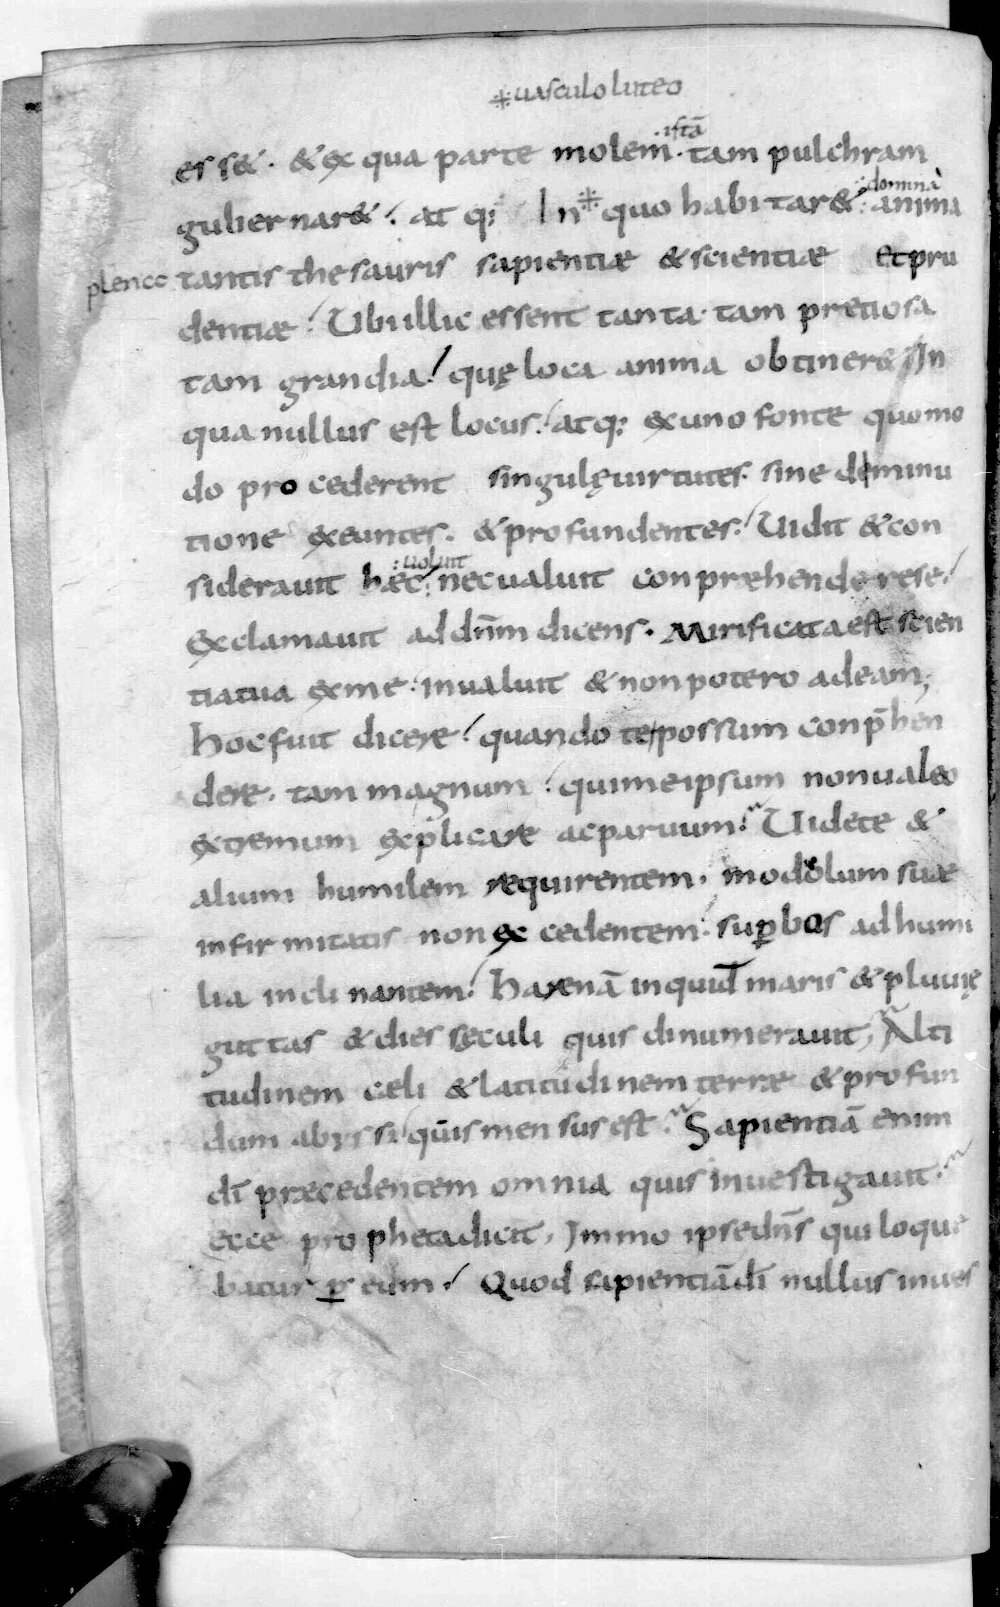 ※uasculo luteo
istā
es s&. &ex qua parte molem. tam pulchram
:domina
gubernar&. atq: In※quo habitar&: anima
plencc tantis thesauris sapientiæ &scientiæ etpru
dentiæ. Ubi illic essent tanta. tam pretiosa
tam grandia. quę loca anima obtiner& In
qua nullus est locus. atq: ex uno fonte quomo
do procederent singulęuirtutes. sine deminu
tione exeuntes. &profundentes. Uidit &con
:uoluit
siderauit hæc: necualuit conpræhendere se.
Exclamauit ad dn̄m dicens. Mirificata est scien
tiatua exme. inualuit &nonpotero adeam;
hocfuit dicere. quando te possum conp̄hen
dere. tam magnum. quimeipsum nonualeo
extremum explicare acparuum. Uidete &
alium humilem requirentem. modolum suae
infirmitatis non excedentem. sup̱bos adhumi
lia inclinantem. harenā inquid maris &pluuię
guttas &dies sęculi quis dinumerauit, Alti
tudinem cæli &latitudinem terræ &profun
dum abyssi quis mensus est. Sapientiā enim
dī præcedentem omnia quis inuestigauit.
ecce prophetadicit, Immo ipsedn̄s quiloque
batur p̱ eum. Quod sapientiādī nullus inues